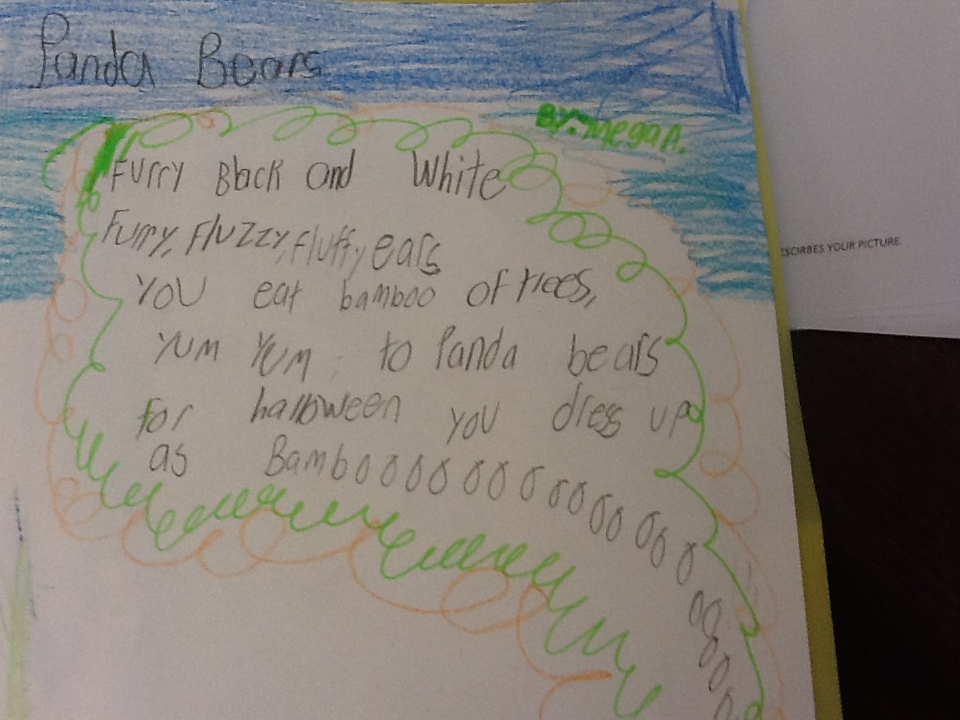 Panda Bears
BY: megan.
Furry Black and White
Furry, Fluzzy, fluffy ears
You eat bamboo of trees,
YUM YUM to Panda bears
for halloween you dress up
as Bamboooooooooooooooooooo
ESCIRBES YOUR PICTURE